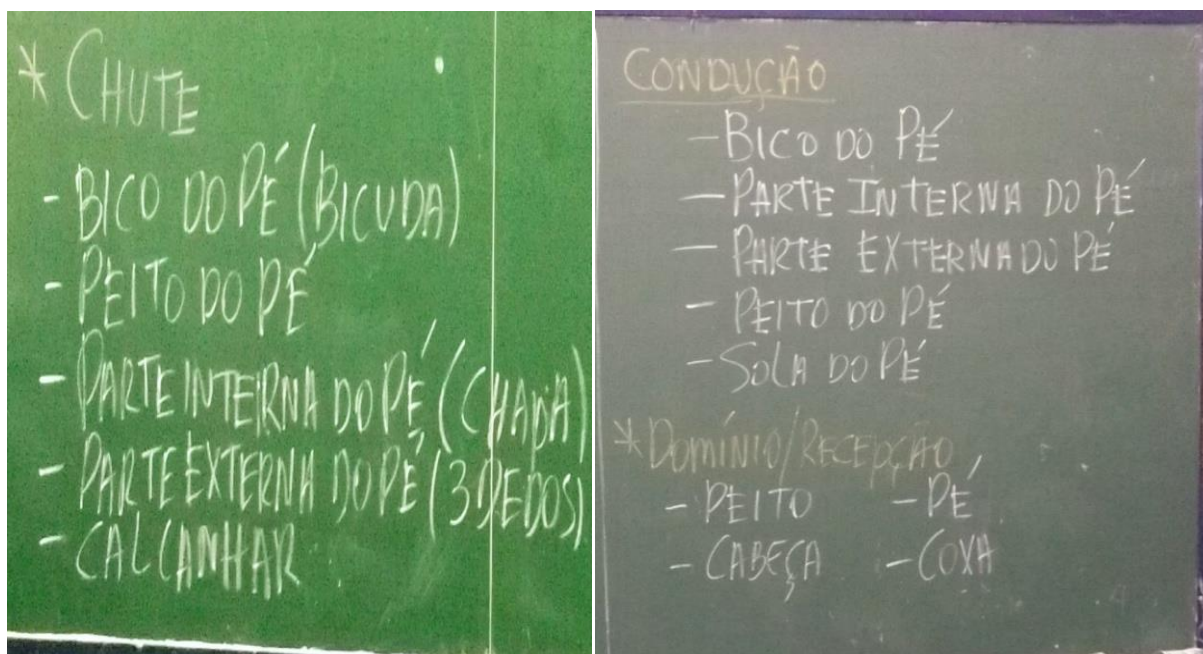 * CHUTE
- BICO DO PÉ (BICUDA)
- PEITO DO PÉ
- PARTE INTERNA DO PÉ (CHAPA)
- PARTE EXTERNA DO PÉ (3 DEDOS)
- CALCANHAR
CONDUÇÃO
- BICO DO PÉ
- PARTE INTERNA DO PÉ
- PARTE EXTERNA DO PÉ
- PEITO DO PÉ
- SOLA DO PÉ
* DOMÍNIO/RECEPÇÃO
- PEITO - PÉ
- CABEÇA - COXA